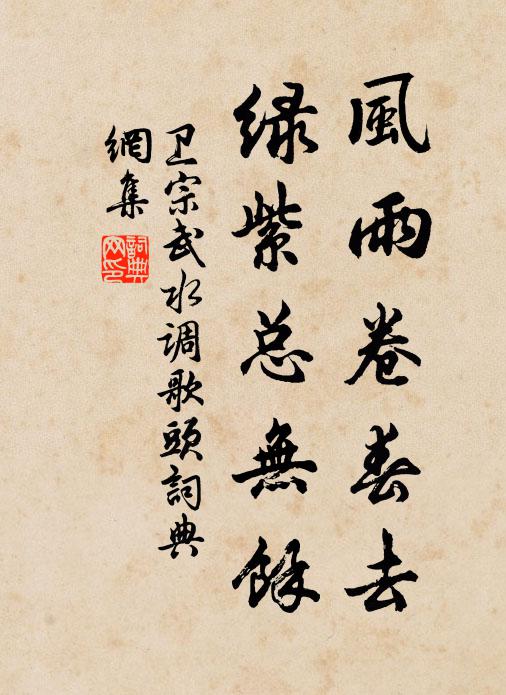 風雨卷春去
绿紫总無餘
卫宗武水调歌頭詞典
網集
詞典
网印